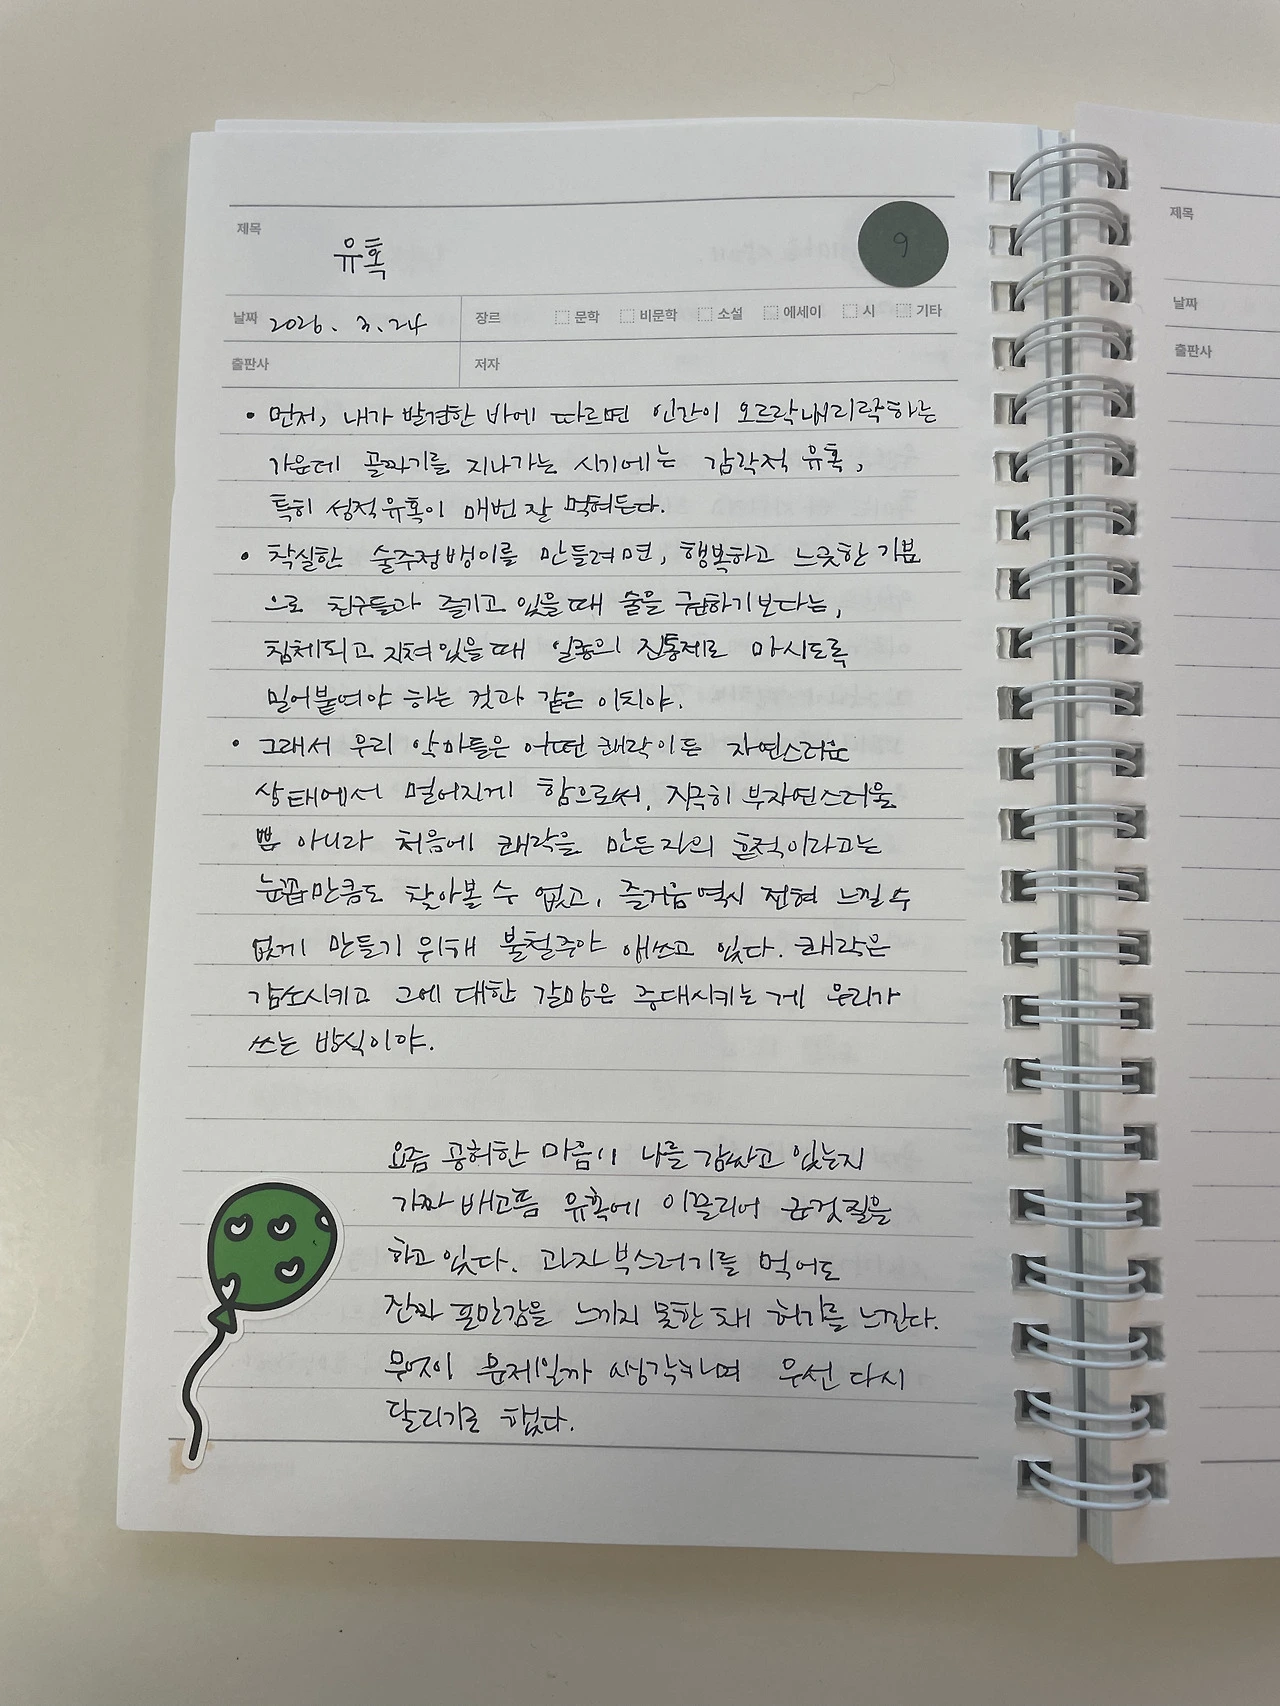 제목
유혹
9
날짜 2026. 3. 24 장르 문학 비문학 소설 에세이 시 기타
출판사 저자
• 먼저, 내가 발견한 바에 따르면 인간이 오르락내리락하는
가운데 골짜기를 지나가는 시기에는 감각적 유혹,
특히 성적유혹이 매번 잘 먹혀든다.
• 착실한 술주정뱅이를 만들려면, 행복하고 느긋한 기분
으로 친구들과 즐기고 있을 때 술을 권하기보다는,
침체되고 지쳐있을 때 일종의 진통제로 마시도록
밀어붙여야 하는 것과 같은 이치야.
• 그래서 우리 악마들은 어떤 쾌락이든 자연스러운
상태에서 멀어지게 함으로써, 지극히 부자연스러울
뿐 아니라 처음에 쾌락을 만든자의 흔적이라고는
눈꼽만큼도 찾아볼 수 없고, 즐거움 역시 전혀 느낄 수
없게 만들기 위해 불철주야 애쓰고 있다. 쾌락은
감소시키고 그에 대한 갈망은 증대시키는 게 우리가
쓰는 방식이야.
요즘 공허한 마음이 나를 감싸고 있는지
가짜 배고픔 유혹에 이끌리어 군것질을
하고 있다. 과자 부스러기를 먹어도
진짜 포만감을 느끼지 못한 채 허기를 느낀다.
무엇이 문제일까 생각하며 우선 다시
달리기로 했다.
제목
날짜
출판사